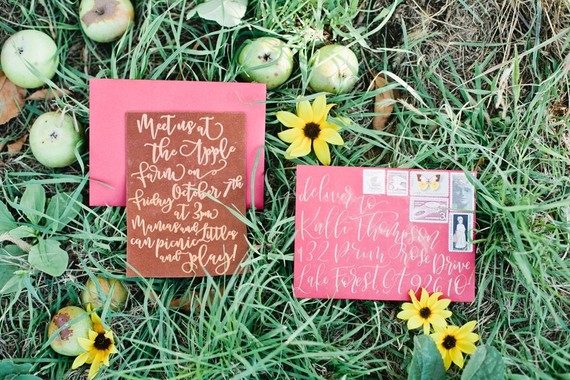 Meet us at
the Apple
Farm on
October 7th
Friday
at 3pm
Mamas and Littles
can picnic
and play!
deliver to
Kalli Thompson
132 Prim Rose Drive
Lake Forest CA 92610